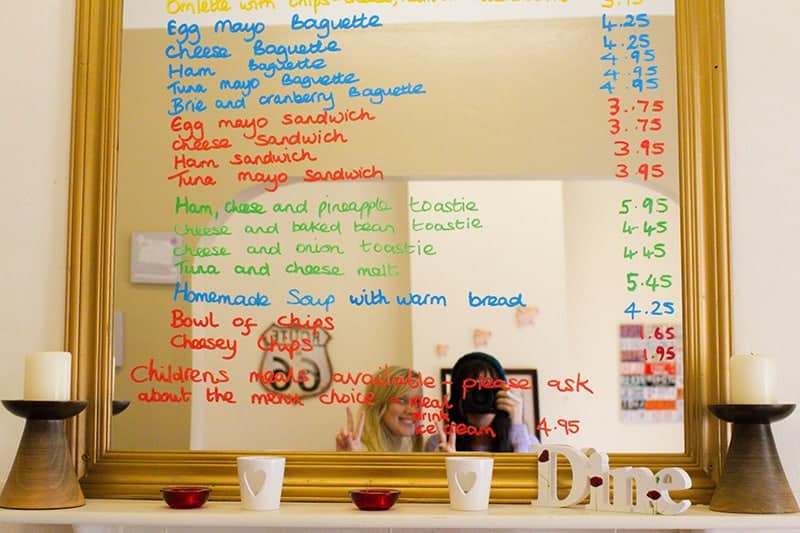 Omlette with chips
Egg Mayo Baguette 4.25
Cheese Baguette 4.25
Ham Baguette 4.95
Tuna mayo Baguette 4.95
Brie and cranberry Baguette 4.95
Egg mayo sandwich 3.75
cheese sandwich 3.75
Ham sandwich 3.95
Tuna mayo sandwich 3.95
Ham, cheese and pineapple toastie 5.95
cheese and baked bean toastie 4.45
cheese and onion toastie 4.45
Tuna and cheese melt 5.45
Homemade Soup with warm bread 4.25
Bowl of chips 1.65
Cheesey Chips 1.95
Childrens meals available - please ask
about the menu choice - meal
drink
ice cream 4.95
Dine